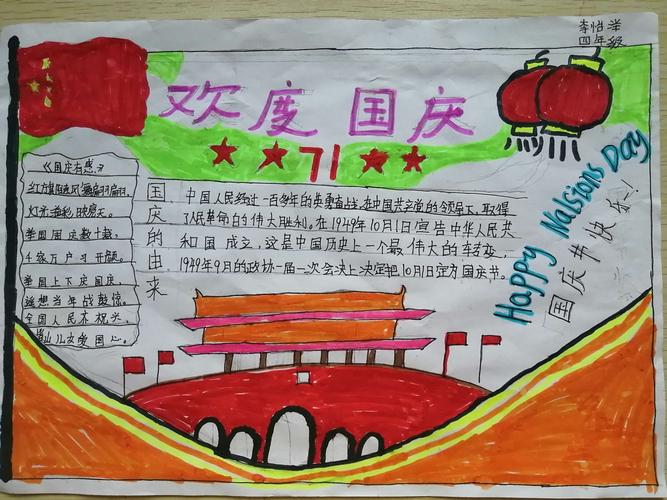 李怡洋
四年级
欢度 国庆
71
《国庆有感》
红旗飘飘
灯光
举国同庆数十载,
千家万户习开颜。
举国上下庆国庆,
遥想当年战鼓惊。
全国人民齐祝兴,
儿女爱国心。
国庆的由来
中国人民经过一百多年的英勇奋战,在中国共产党的领导下,取得
了人民革命的伟大胜利。在1949年10月1日宣告中华人民共
和国成立,这是中国历史上一个最伟大的转变,
1949年9月的政协一届一次会决上决定把10月1日定为国庆节。
Happy Nalsions Day
国庆节快乐!